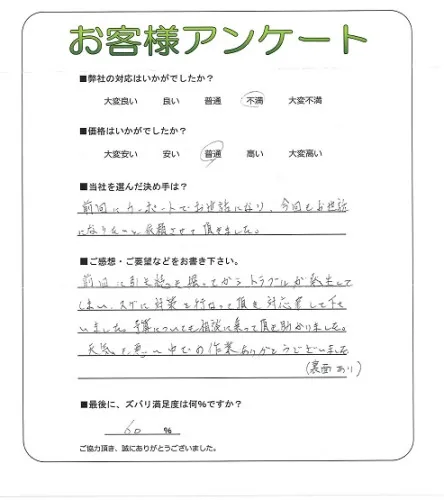 お客様アンケート
■弊社の対応はいかがでしたか？
大変良い 良い 普通 不満 大変不満
■価格はいかがでしたか？
大変安い 安い 普通 高い 大変高い
■当社を選んだ決め手は？
前回にカーポートでお世話になり、今回もお世話
になりたいと依頼させて頂きました。
■ご感想・ご要望などをお書き下さい。
前回に引き続き 掘ってから トラブルが発生して
しまい、スグに対策を行なって頂き 対応策して下さ
いました。予算についても相談に乗って頂き助かりました。
天気の悪い中での作業ありがとうございました
(裏面あり)
■最後に、ズバリ満足度は何%ですか？
60 %
ご協力頂き、誠にありがとうございました。